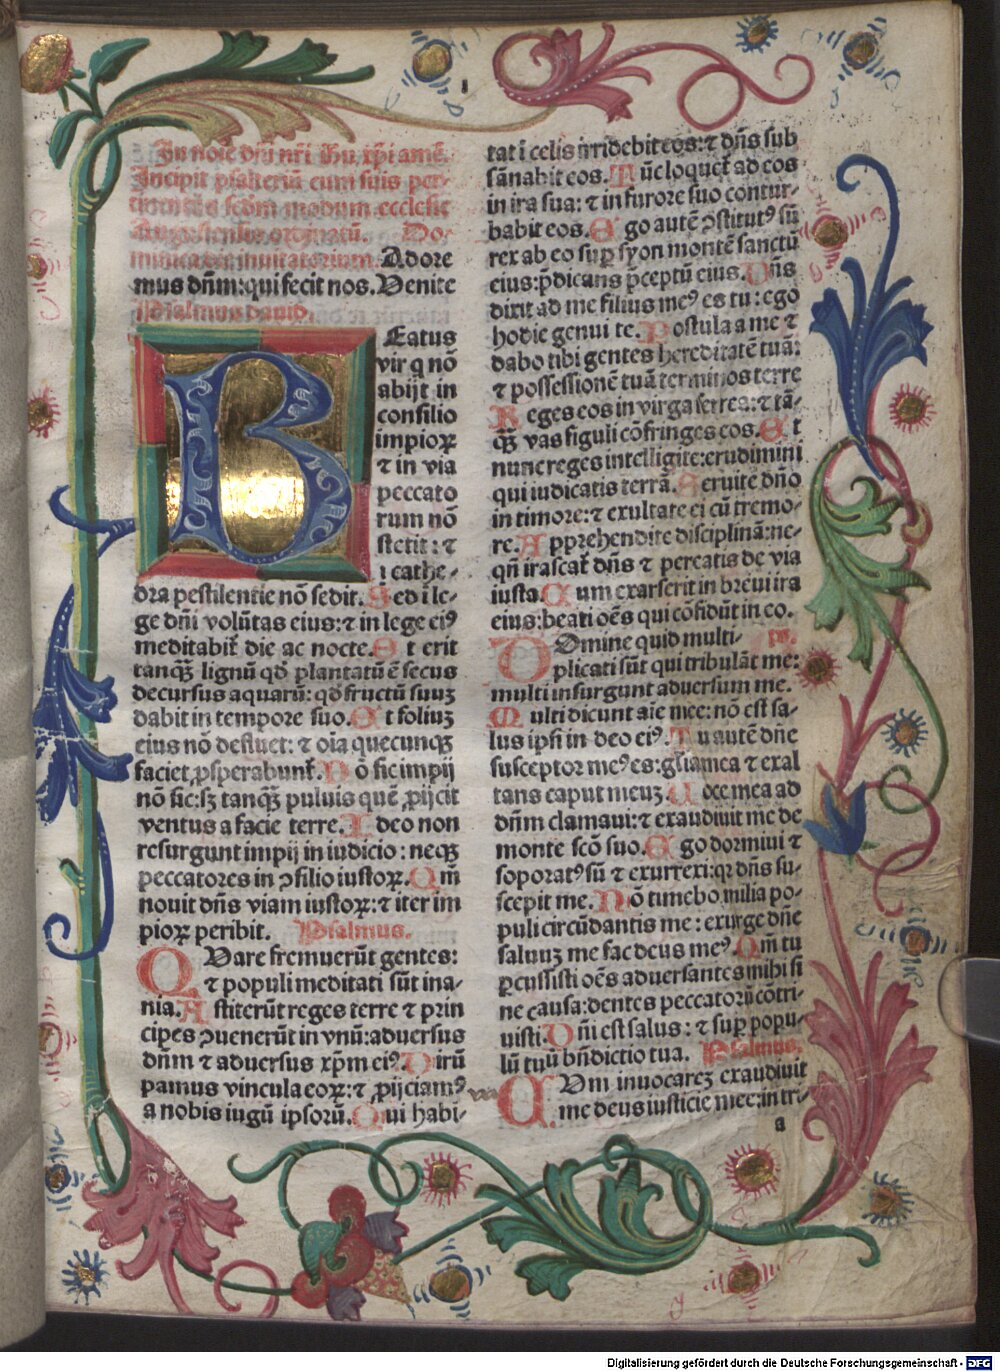 In noīe dn̄i nr̄i ihū xp̄i amē.
Incipit psalteriū cum suis per-
tinentiis scd̄m modum ecclesie
Augustensis ordinatū. Do-
minica die inuitatorium. Adore
mus dn̄m: qui fecit nos. Venite
Psalmus dauid.
Beatus
vir q nō
abijt in
consilio
impioꝝ
⁊ in via
peccato
rum nō
stetit: ⁊
ī cathe-
dra pestilentie nō sedit. Sed ī le-
ge dn̄i volūtas eius: ⁊ in lege eiꝰ
meditabit̄ die ac nocte. Et erit
tanqꝫ lignū qd̄ plantatū ē secus
decursus aquarū: qd̄ fructū suuꝫ
dabit in tempore suo. Et foliuꝫ
eius nō defluet: ⁊ oīa quecunqꝫ
faciet ꝓsperabunt̄. Nō sic impij
nō sic: sꝫ tanqꝫ puluis quē ꝓijcit
ventus a facie terre. Ideo non
resurgunt impij in iudicio: neqꝫ
peccatores in ꝯsilio iustoꝝ. Qm̄
nouit dn̄s viam iustoꝝ: ⁊ iter im
pioꝝ peribit. Psalmus.
Quare fremuerūt gentes:
⁊ populi meditati sūt ina-
nia. Astiterūt reges terre ⁊ prin
cipes ꝯuenerūt in vnū: aduersus
dn̄m ⁊ aduersus xp̄m eiꝰ. Dirū
pamus vincula eoꝝ: ⁊ ꝓijciamꝰ
a nobis iugū ipsorū. Qui habi-
tat ī celis irridebit eos: ⁊ dn̄s sub
sānabit eos. Tūc loquet̄ ad eos
in ira sua: ⁊ in furore suo contur-
babit eos. Ego autē ꝯstitutꝰ sū
rex ab eo suꝑ syon montē sanctū
eius: p̄dicans p̄ceptū eius. Dn̄s
dixit ad me filius meꝰ es tu: ego
hodie genui te. Postula a me ⁊
dabo tibi gentes hereditatē tuā:
⁊ possessionē tuā terminos terre
Reges eos in virga ferrea: ⁊ tā-
qꝫ vas figuli cōfringes eos. Et
nunc reges intelligite: erudimini
qui iudicatis terrā. Seruite dn̄o
in timore: ⁊ exultate ei cū tremo-
re. Apprehendite disciplinā: ne-
qn̄ irascat̄ dn̄s ⁊ pereatis de via
iusta. Cum exarserit in breui ira
eius: beati oēs qui cōfidūt in eo.
Domine quid multi- ps.
plicati sūt qui tribulāt me:
multi insurgunt aduersum me.
Multi dicunt aīe mee: nō est sa-
lus ipsi in deo eiꝰ. Tu autē dn̄e
susceptor meꝰ es: gl̄ia mea ⁊ exal
tans caput meuꝫ. Uoce mea ad
dn̄m clamaui: ⁊ exaudiuit me de
monte scō suo. Ego dormiui ⁊
soporatꝰ sū ⁊ exurrexi: qꝛ dn̄s su-
scepit me. Nō timebo milia po-
puli circūdantis me: exurge dn̄e
saluuꝫ me fac deus meꝰ. Qm̄ tu
ꝑcussisti oēs aduersantes mihi si
ne causa: dentes peccatorū cōtri-
uisti. Dn̄i est salus: ⁊ suꝑ popu-
lū tuū bn̄dictio tua. Psalmus.
Cum inuocareꝫ exaudiuit
me deus iusticie mee: in tri-
a
Digitalisierung gefördert durch die Deutsche Forschungsgemeinschaft - DFG